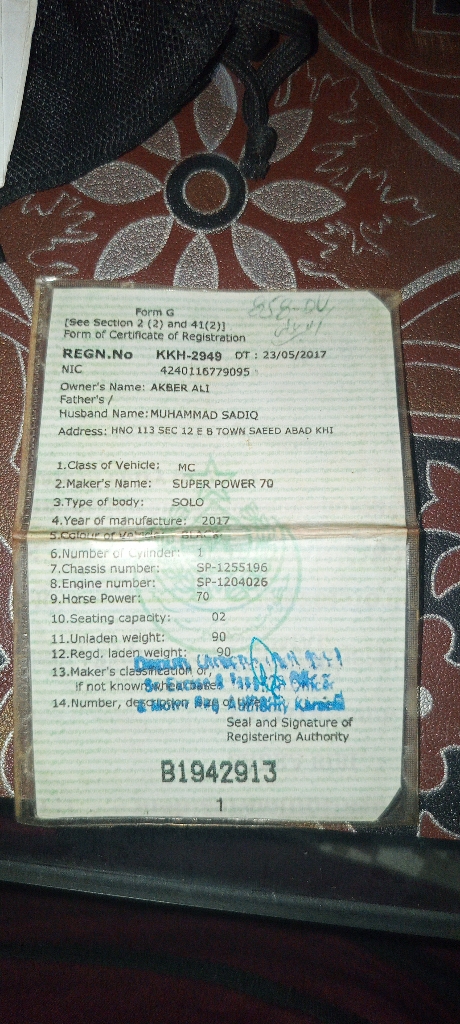 Form G
[See Section 2 (2) and 41(2)]
Form of Certificate of Registration
REGN.No KKH-2949 DT : 23/05/2017
NIC 4240116779095
Owner's Name: AKBER ALI
Father's /
Husband Name: MUHAMMAD SADIQ
Address: HNO 113 SEC 12 E B TOWN SAEED ABAD KHI
1.Class of Vehicle: MC
2.Maker's Name: SUPER POWER 70
3.Type of body: SOLO
4.Year of manufacture: 2017
5.Colour of Vehicle: BLACK
6.Number of Cylinder: 1
7.Chassis number: SP-1255196
8.Engine number: SP-1204026
9.Horse Power: 70
10.Seating capacity: 02
11.Unladen weight: 90
12.Regd. laden weight: 90
13.Maker's classification or,
if not known
14.Number, 
Seal and Signature of
Registering Authority
B1942913
1